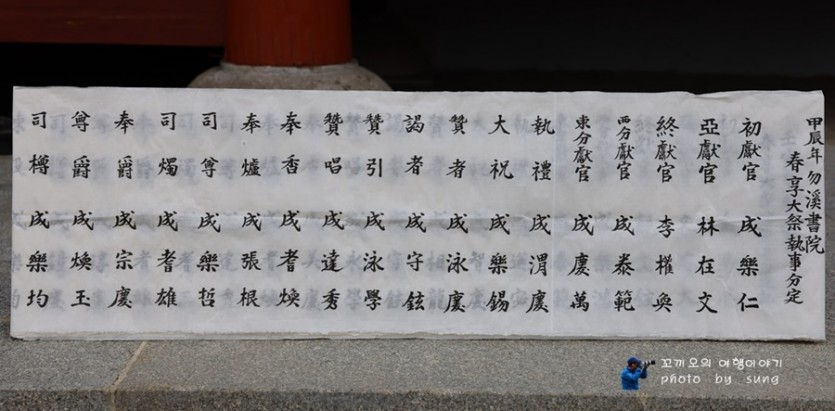 甲辰年 勿溪書院
春享大祭執事分定
初獻官 成樂仁
亞獻官 林在文
終獻官 李權奐
西分獻官 成泰範
東分獻官 成慶萬
執禮 成渭慶
大祝 成樂錫
贊者 成泳慶
謁者 成守鉉
贊引 成泳學
贊唱 成達秀
奉香 成耆煥
奉爐 成張根
司尊 成樂哲
司燭 成耆雄
奉爵 成宗慶
尊爵 成煥玉
司樽 成樂均
꼬끼오의 여행이야기
photo by sung